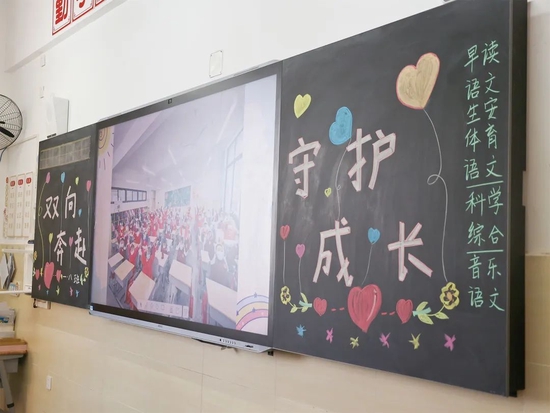 勤
双向
奔赴
守护
成长
早读
语文
生安
体育
语文
科学
综合
音乐
语文